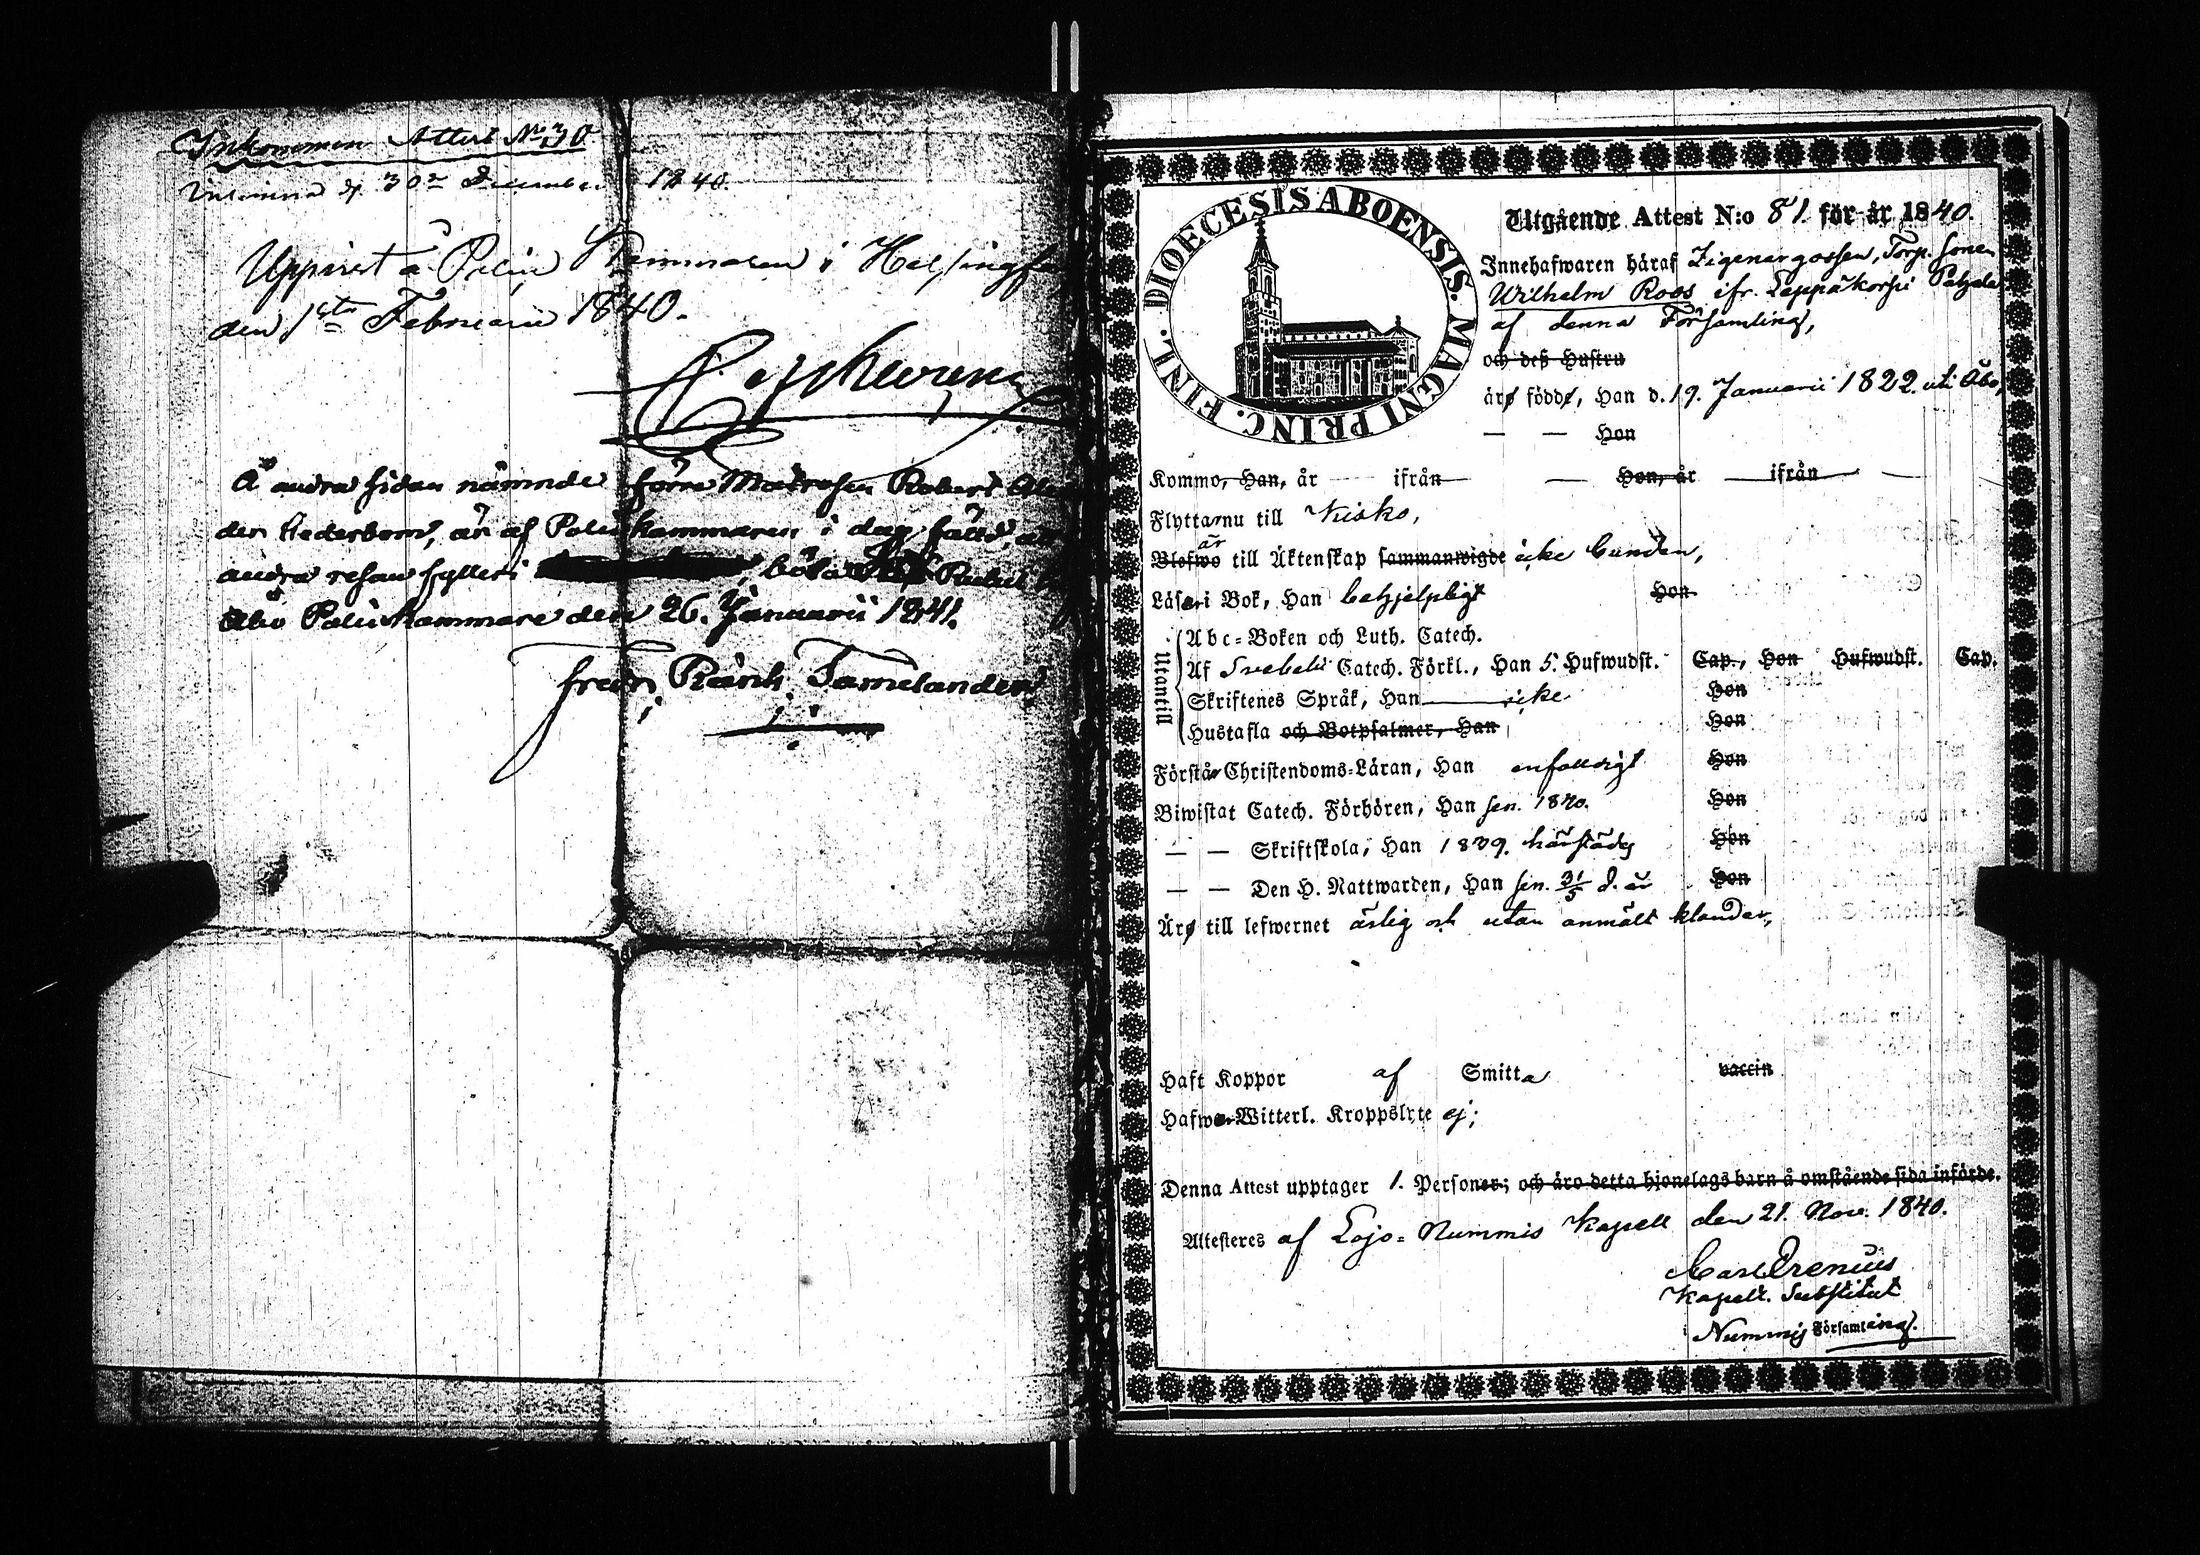 Inkommen Attest No 30
d. 30de December 1840.
Uppvist å Polis Kammaren i Helsingf
den 1sta Februarii 1840.
Å andra sidan nämnde förre Matrosen Robert
der Cederbom, är af Poliskammaren i dag fälld, att
andra resan fylleri böta Rubel
Åbo Poliskammare den 26. Januarii 1841.
Fredr.
DIOECESIS ABOENSIS. MAGNI PRINC. FINL.
Utgående Attest N:o 81. för år 1840.
Innehafwaren häraf Zigenargossen, Torp. Sonen
Wilhelm Roos ifr. Leppäkorpi
af denna Församling,
och deß Hustru
äro födde, Han d. 19. Januarii 1822. uti Åbo,
— — Hon
Kommo, Han, år ifrån — Hon, år — ifrån —
Flyttar nu till Kisko,
är
Blefwo till Äktenskap sammanwigde icke bunden,
Läser i Bok, Han behjelpligt Hon
Utantill
Abc-Boken och Luth. Catech.
Af Svebelii Catech. Förkl., Han 5. Hufwudst. Cap., Hon Hufwudst. Cap.
Skriftenes Språk, Han icke Hon
Hustafla och Botpsalmer, Han Hon
Förstår Christendoms-Läran, Han enfaldigt Hon
Biwistat Catech. Förhören, Han sen. 1840. Hon
— — Skriftskola, Han 1839. härstädes Hon
— — Den H. Nattwarden, Han sen. 31/5 d. år Hon
Äro till lefwernet ärlig och utan anmält klander,
Haft Koppor af Smitta vaccin
Hafwa Witterl. Kroppslyte ej;
Denna Attest upptager 1. Personer; och äro detta hjonelags barn å omstående sida införde.
Attesteres af Lojo-Nummis Kapell den 21. Nov. 1840.
Carl Orenius
Kapell. Substitut
i Nummis Församling.